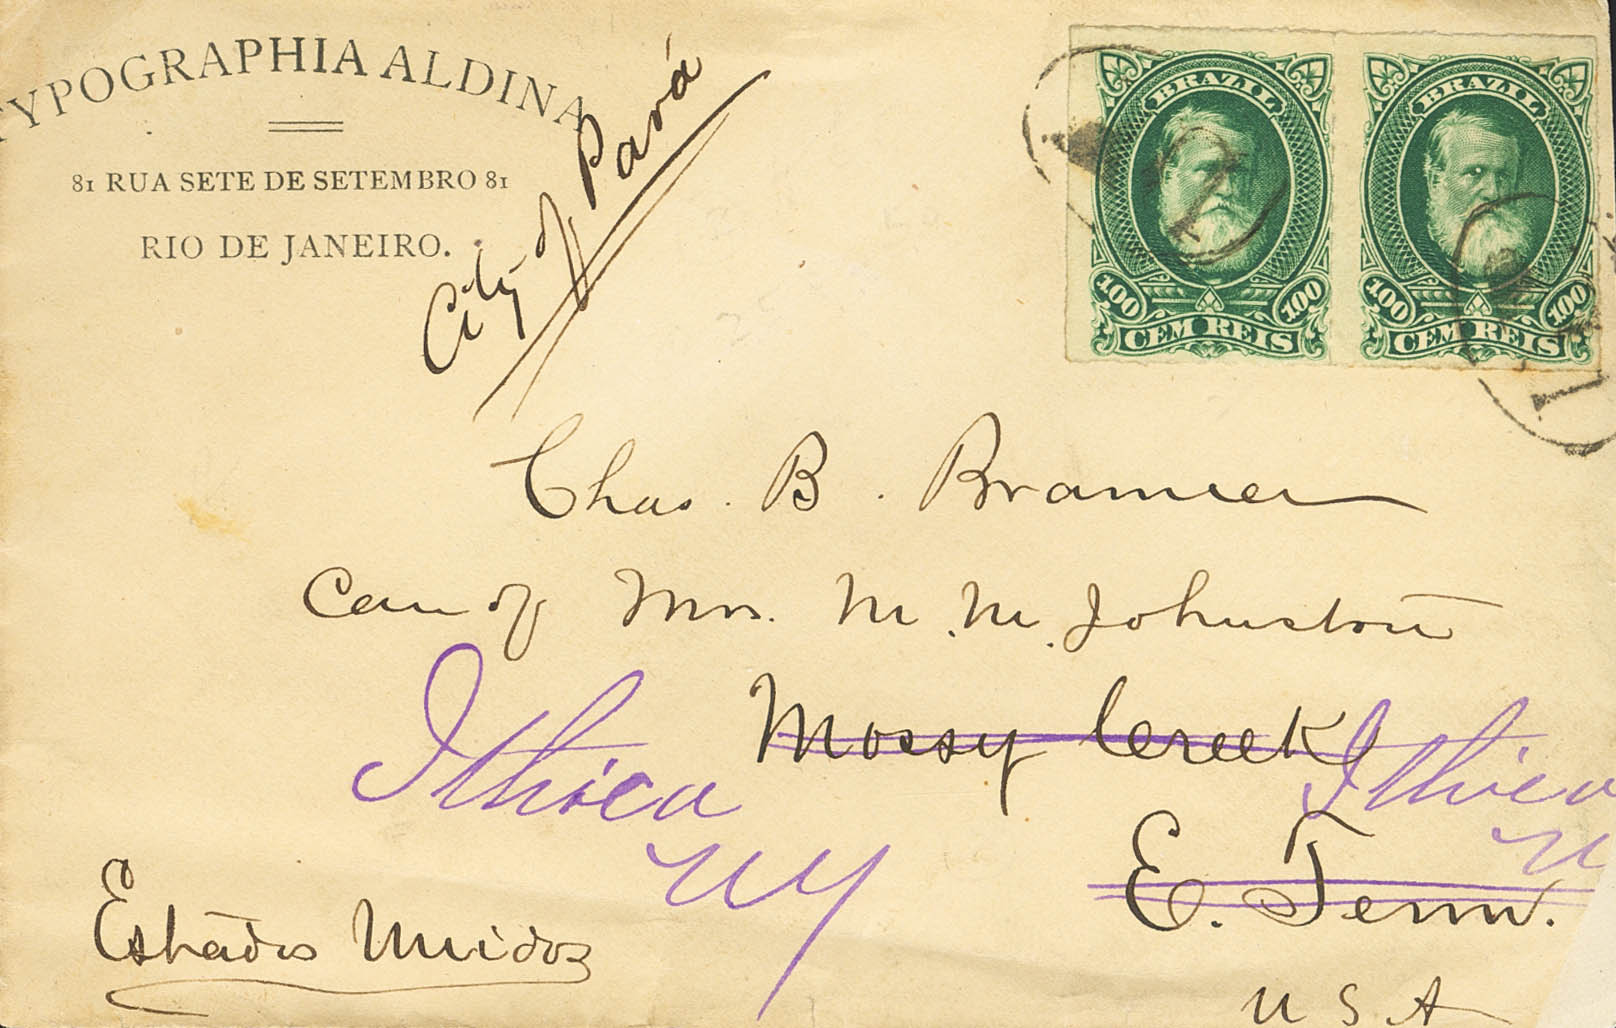 TYPOGRAPHIA ALDINA
81 RUA SETE DE SETEMBRO 81
RIO DE JANEIRO.
City of Pará
BRAZIL
100 100
CEM REIS
BRAZIL
100 100
CEM REIS
Chas. B.
Care of Mrs. M. M. Johnston
Mossy Creek
Ithica
NY
Ithica
N
E. Tenn.
Estados Unidos
U S A